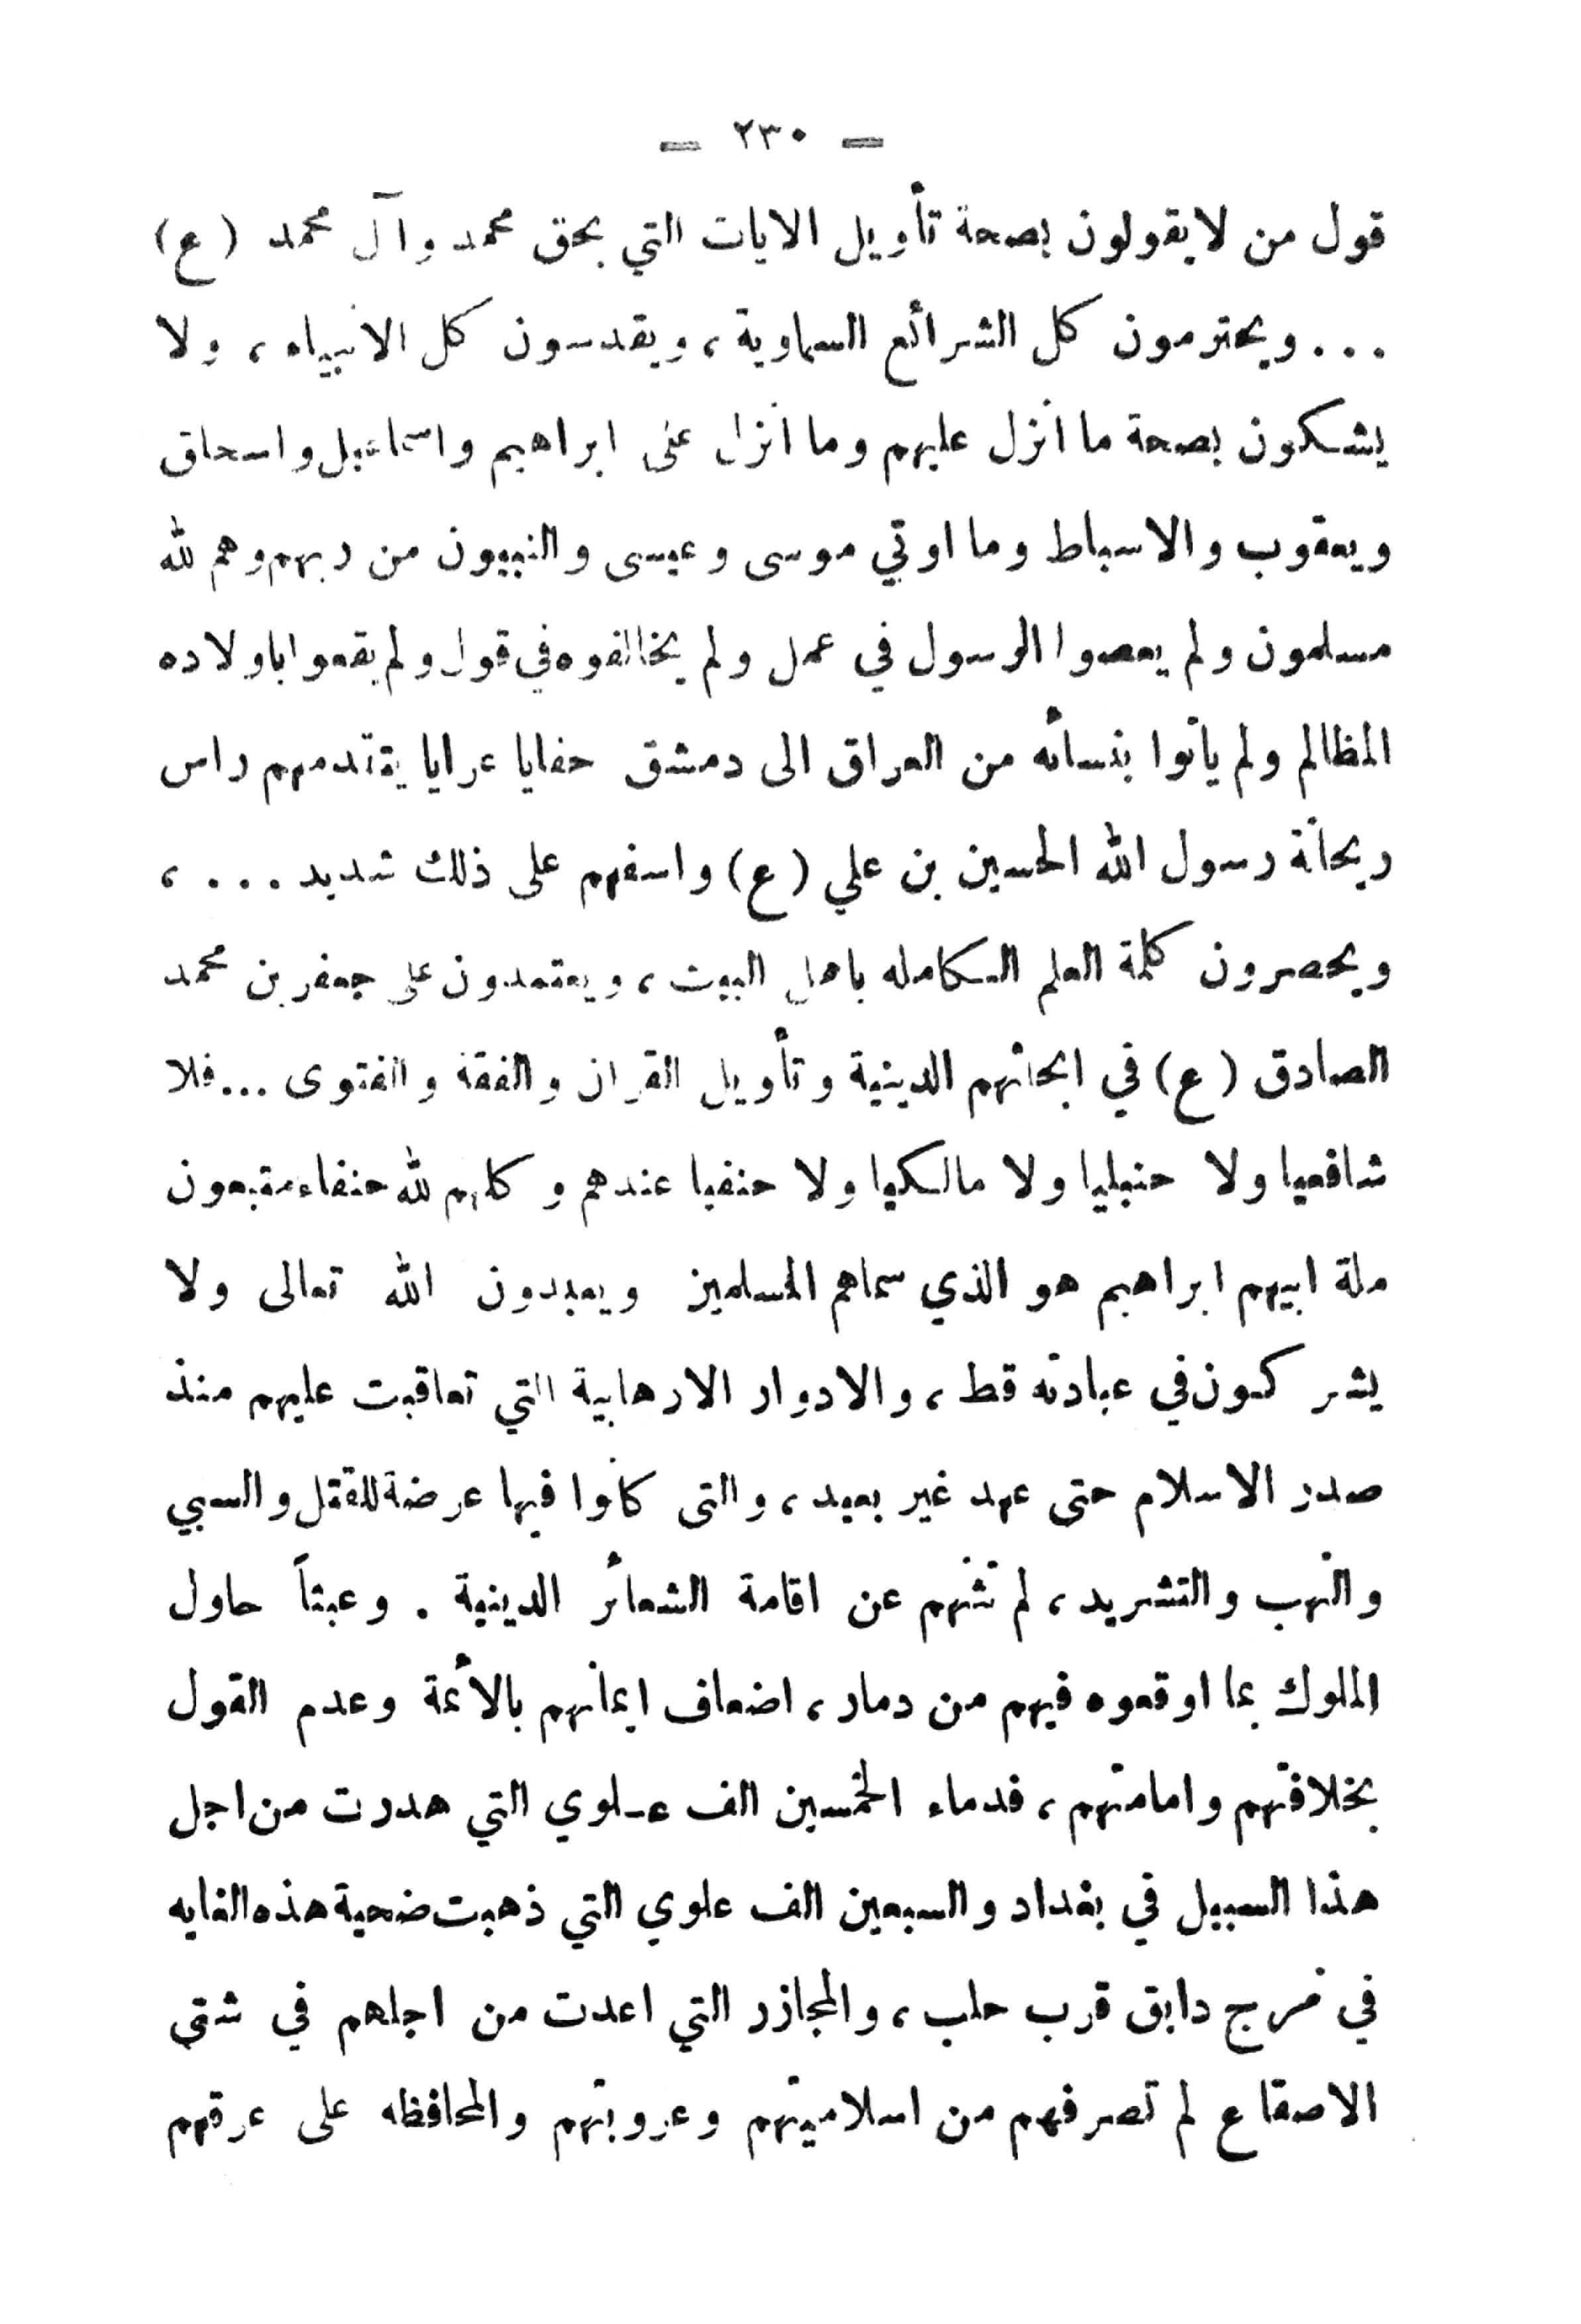 — ٢٣٠ —
قول من لايقولون بصحة تأويل الايات التي بحق محمد وآل محمد (ع)
... ويحترمون كل الشرائع السماوية ، ويقدسون كل الانبياء ، ولا
يشكون بصحة ما انزل عليهم وما انزل على ابراهيم واسماعيل واسحاق
ويعقوب والاسباط وما اوتي موسى وعيسى والنبيون من ربهم وهم لله
مسلمون ولم يعصوا الرسول في عمل ولم يخالفوه في قول ولم يقعوا باولاده
المظالم ولم يأتوا بنسائه من العراق الى دمشق حفايا عرايا يتقدمهم راس
ريحانة رسول الله الحسين بن علي (ع) واسفهم على ذلك شديد ... ،
ويحصرون كلمة العلم الكامله باهل البيت ، ويعتمدون على جعفر بن محمد
الصادق (ع) في ابحاثهم الدينية وتأويل القران والفقه والفتوى ... فلا
شافعيا ولا حنبليا ولا مالكيا ولا حنفيا عندهم وكلهم لله حنفاء متبعون
ملة ابيهم ابراهيم هو الذي سماهم المسلمين ويعبدون الله تعالى ولا
يشركون في عبادته قط ، والادوار الارهابية التي تعاقبت عليهم منذ
صدر الاسلام حتى عهد غير بعيد ، والتى كانوا فيها عرضة للقتل والسبي
والنهب والتشريد ، لم تثنهم عن اقامة الشعائر الدينية . وعبثاً حاول
الملوك بما اوقعوه فيهم من دمار ، اضعاف ايمانهم بالأئمة وعدم القول
بخلافتهم وامامتهم ، فدماء الخمسين الف علوي التي هدرت من اجل
هذا السبيل في بغداد والسبعين الف علوي التي ذهبت ضحية هذه الغايه
في مرج دابق قرب حلب ، والمجازر التي اعدت من اجلهم في شتى
الاصقاع لم تصرفهم من اسلاميتهم وعروبتهم والمحافظه على عرقهم